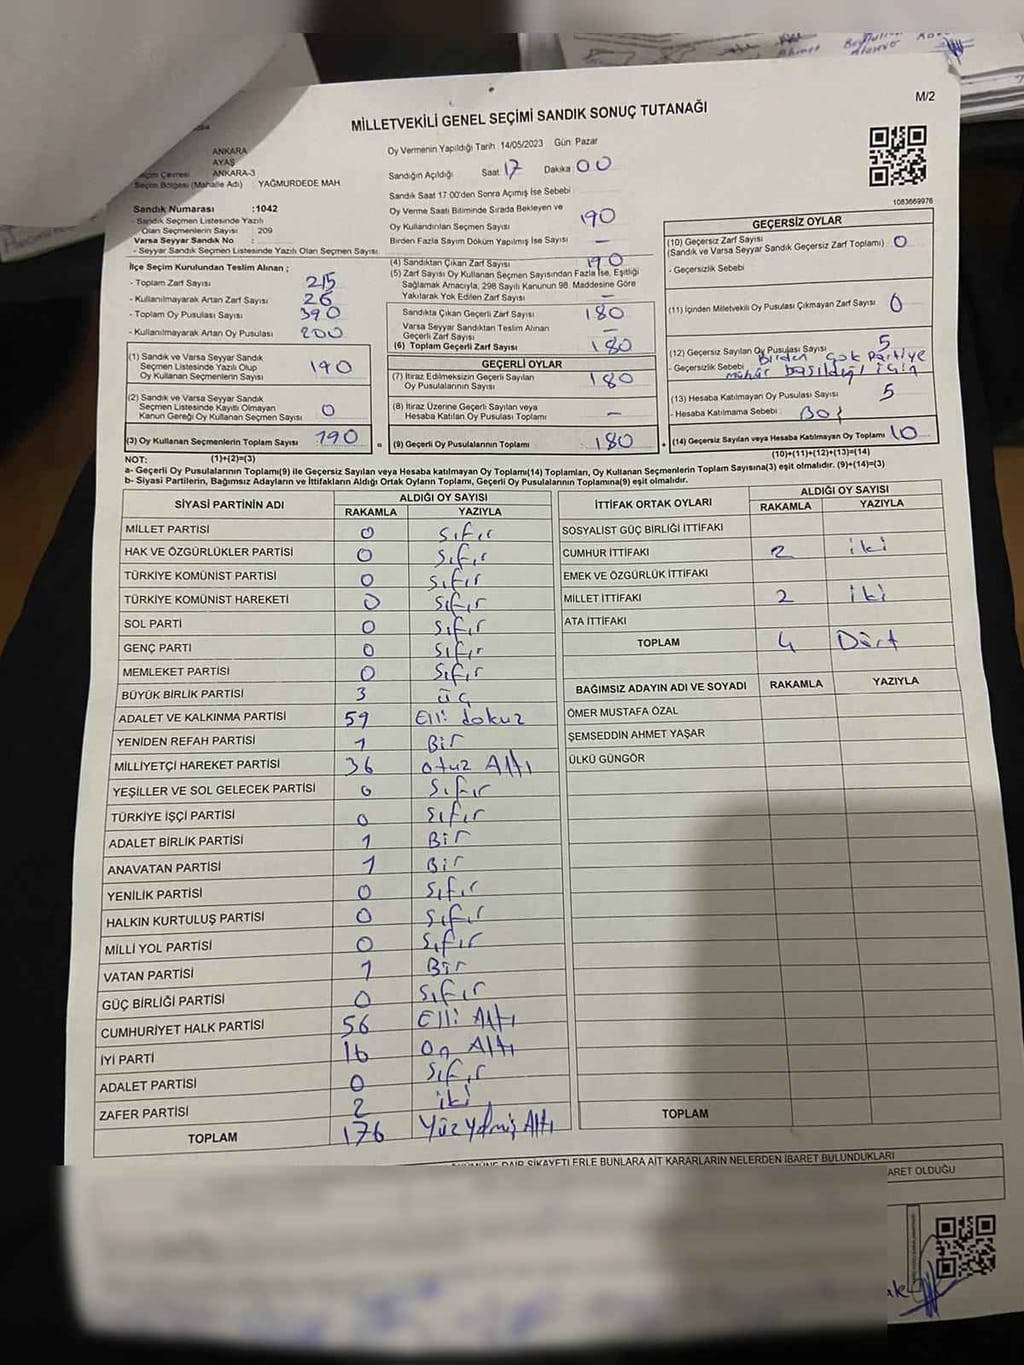 Ahmet
M/2
MİLLETVEKİLİ GENEL SEÇİMİ SANDIK SONUÇ TUTANAĞI
ANKARA
AYAŞ
Seçim Çevresi ANKARA-3
Seçim Bölgesi (Mahalle Adı) : YAĞMURDEDE MAH
Sandık Numarası :1042
- Sandık Seçmen Listesinde Yazılı
Olan Seçmenlerin Sayısı : 209
Varsa Seyyar Sandık No :
- Seyyar Sandık Seçmen Listesinde Yazılı Olan Seçmen Sayısı
İlçe Seçim Kurulundan Teslim Alınan ;
- Toplam Zarf Sayısı 215
- Kullanılmayarak Artan Zarf Sayısı 26
- Toplam Oy Pusulası Sayısı 390
- Kullanılmayarak Artan Oy Pusulası 200
(1) Sandık ve Varsa Seyyar Sandık
Seçmen Listesinde Yazılı Olup
Oy Kullanan Seçmenlerin Sayısı 190
(2) Sandık ve Varsa Seyyar Sandık
Seçmen Listesinde Kayıtlı Olmayan
Kanun Gereği Oy Kullanan Seçmen Sayısı 0
(3) Oy Kullanan Seçmenlerin Toplam Sayısı 190 =
Oy Vermenin Yapıldığı Tarih :14/05/2023 Gün: Pazar
Sandığın Açıldığı Saat 17 Dakika 00
Sandık Saat 17:00'den Sonra Açımış İse Sebebi
Oy Verme Saati Bitiminde Sırada Bekleyen ve
Oy Kullandırılan Seçmen Sayısı 190
Birden Fazla Sayım Döküm Yapılmış İse Sayısı —
(4) Sandıktan Çıkan Zarf Sayısı 190
(5) Zarf Sayısı Oy Kullanan Seçmen Sayısından Fazla İse, Eşitliği
Sağlamak Amacıyla, 298 Sayılı Kanunun 98. Maddesine Göre
Yakılarak Yok Edilen Zarf Sayısı —
Sandıkta Çıkan Geçerli Zarf Sayısı 180
Varsa Seyyar Sandıktan Teslim Alınan
Geçerli Zarf Sayısı —
(6) Toplam Geçerli Zarf Sayısı 180
GEÇERLİ OYLAR
(7) İtiraz Edilmeksizin Geçerli Sayılan
Oy Pusulalarının Sayısı 180
(8) İtiraz Üzerine Geçerli Sayılan veya
Hesaba Katılan Oy Pusulası Toplamı —
(9) Geçerli Oy Pusulalarının Toplamı 180 +
1083669976
GEÇERSİZ OYLAR
(10) Geçersiz Zarf Sayısı
(Sandık ve Varsa Seyyar Sandık Geçersiz Zarf Toplamı) 0
- Geçersizlik Sebebi
(11) İçinden Milletvekili Oy Pusulası Çıkmayan Zarf Sayısı 0
(12) Geçersiz Sayılan Oy Pusulası Sayısı 5
- Geçersizlik Sebebi Birden Çok Partiye
mühür basıldığı için
(13) Hesaba Katılmayan Oy Pusulası Sayısı 5
- Hesaba Katılmama Sebebi Boş
(14) Geçersiz Sayılan veya Hesaba Katılmayan Oy Toplamı 10
NOT: (1)+(2)=(3) (10)+(11)+(12)+(13)=(14)
a- Geçerli Oy Pusulalarının Toplamı(9) ile Geçersiz Sayılan veya Hesaba katılmayan Oy Toplamı(14) Toplamları, Oy Kullanan Seçmenlerin Toplam Sayısına(3) eşit olmalıdır. (9)+(14)=(3)
b- Siyasi Partilerin, Bağımsız Adayların ve İttifakların Aldığı Ortak Oyların Toplamı, Geçerli Oy Pusulalarının Toplamına(9) eşit olmalıdır.
SİYASİ PARTİNİN ADI ALDIĞI OY SAYISI
RAKAMLA YAZIYLA
MİLLET PARTİSİ 0 Sıfır
HAK VE ÖZGÜRLÜKLER PARTİSİ 0 Sıfır
TÜRKİYE KOMÜNİST PARTİSİ 0 Sıfır
TÜRKİYE KOMÜNİST HAREKETİ 0 Sıfır
SOL PARTİ 0 Sıfır
GENÇ PARTİ 0 Sıfır
MEMLEKET PARTİSİ 0 Sıfır
BÜYÜK BİRLİK PARTİSİ 3 üç
ADALET VE KALKINMA PARTİSİ 59 Elli dokuz
YENİDEN REFAH PARTİSİ 1 Bir
MİLLİYETÇİ HAREKET PARTİSİ 36 otuz Altı
YEŞİLLER VE SOL GELECEK PARTİSİ 0 Sıfır
TÜRKİYE İŞÇİ PARTİSİ 0 Sıfır
ADALET BİRLİK PARTİSİ 1 Bir
ANAVATAN PARTİSİ 1 Bir
YENİLİK PARTİSİ 0 Sıfır
HALKIN KURTULUŞ PARTİSİ 0 Sıfır
MİLLİ YOL PARTİSİ 0 Sıfır
VATAN PARTİSİ 1 Bir
GÜÇ BİRLİĞİ PARTİSİ 0 Sıfır
CUMHURİYET HALK PARTİSİ 56 Elli Altı
İYİ PARTİ 16 On Altı
ADALET PARTİSİ 0 Sıfır
ZAFER PARTİSİ 2 iki
TOPLAM 176 Yüz Yetmiş Altı
İTTİFAK ORTAK OYLARI ALDIĞI OY SAYISI
RAKAMLA YAZIYLA
SOSYALİST GÜÇ BİRLİĞİ İTTİFAKI
CUMHUR İTTİFAKI 2 iki
EMEK VE ÖZGÜRLÜK İTTİFAKI
MİLLET İTTİFAKI 2 iki
ATA İTTİFAKI
TOPLAM 4 Dört
BAĞIMSIZ ADAYIN ADI VE SOYADI RAKAMLA YAZIYLA
ÖMER MUSTAFA ÖZAL
ŞEMSEDDİN AHMET YAŞAR
ÜLKÜ GÜNGÖR
TOPLAM
DAİR ŞİKAYETLERLE BUNLARA AİT KARARLARIN NELERDEN İBARET BULUNDUKLARI
OLDUĞU